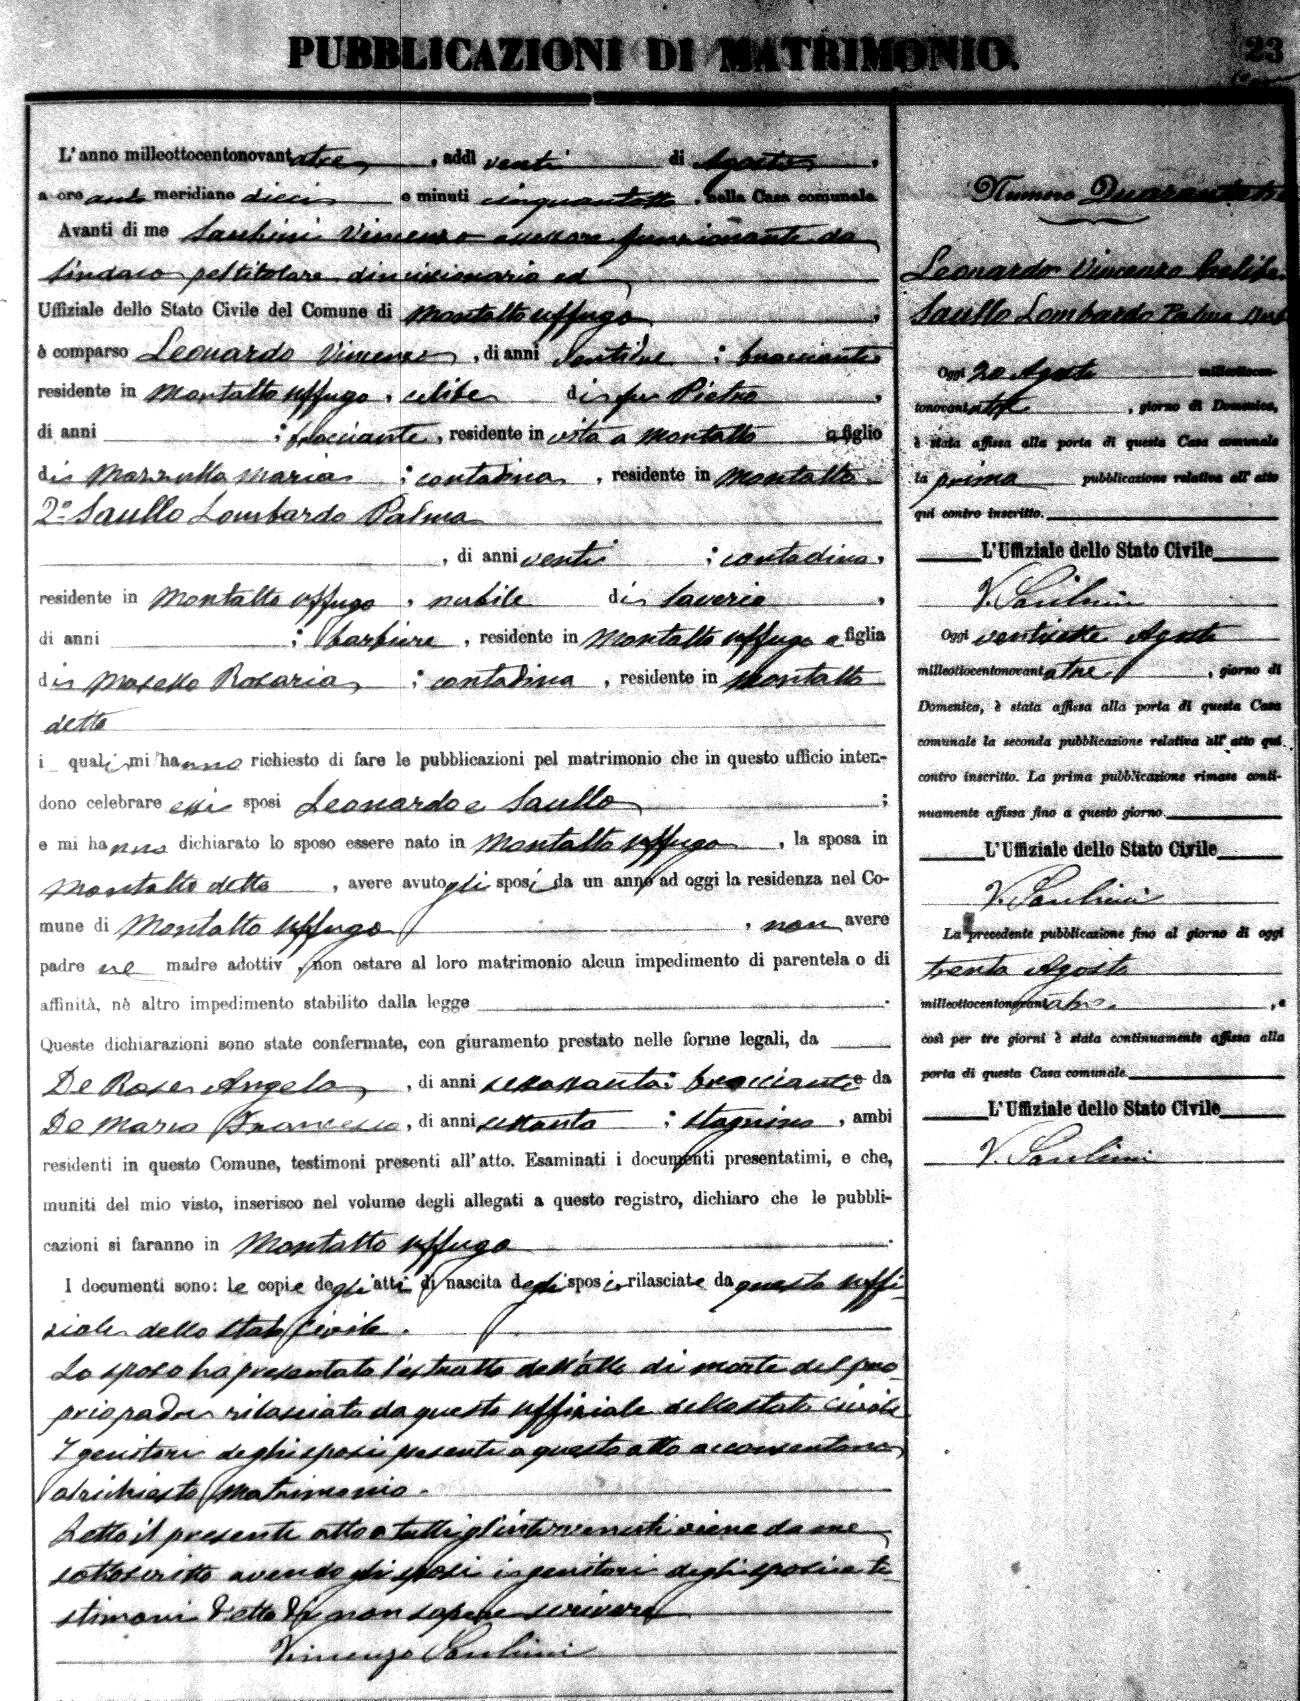 PUBBLICAZIONI DI MATRIMONIO.
23
L'anno milleottocentonovantatre, addì venti di Agosto,
a ore ante meridiane dieci e minuti cinquantotto, nella Casa comunale.
Avanti di me Vincenzo assessore funzionante da
Sindaco pel titolare dimissionario ed
Uffiziale dello Stato Civile del Comune di Montalto Uffugo;
è comparso Leonardo Vincenzo, di anni ; bracciante
residente in Montalto Uffugo, celibe di fu Pietro,
di anni ; bracciante, residente in vita a Montalto e figlio
di Maria ; contadina, residente in Montalto
2º Saullo Lombardo Palma
, di anni venti ; contadina,
residente in Montalto Uffugo, nubile di Saverio,
di anni ; barbiere, residente in Montalto Uffugo e figlia
di Rosaria ; contadina, residente in Montalto
detto
i quali mi hanno richiesto di fare le pubblicazioni pel matrimonio che in questo ufficio inten-
dono celebrare essi sposi Leonardo e Saullo ;
e mi hanno dichiarato lo sposo essere nato in Montalto Uffugo, la sposa in
Montalto detto, avere avuto gli sposi da un anno ad oggi la residenza nel Co-
mune di Montalto Uffugo, non avere
padre nè madre adottiv , non ostare al loro matrimonio alcun impedimento di parentela o di
affinità, nè altro impedimento stabilito dalla legge .
Queste dichiarazioni sono state confermate, con giuramento prestato nelle forme legali, da
De Rose Angelo, di anni sessanta ; bracciante e da
De Marco Francesco, di anni settanta ; stagnino, ambi
residenti in questo Comune, testimoni presenti all'atto. Esaminati i documenti presentatimi, e che,
muniti del mio visto, inserisco nel volume degli allegati a questo registro, dichiaro che le pubbli-
cazioni si faranno in Montalto Uffugo.
I documenti sono: le copie degli atti di nascita degli sposi rilasciate da questo uffi-
ziale dello stato civile.
Lo sposo ha presentato l'estratto dell'atto di morte del pro-
prio padre rilasciato da questo uffiziale dello stato civile
I genitori degli sposi presenti a questo atto acconsentono
al richiesto matrimonio.
Letto il presente atto a tutti gl'intervenuti viene da me
sottoscritto avendo gli sposi i genitori degli sposi e te-
stimoni detto di non sapere scrivere
Vincenzo
Numero Quarantatre
Leonardo Vincenzo Celibe
Saullo Lombardo Palma Nub
Oggi 20 Agosto milleottocen-
tonovantatre, giorno di Domenica,
è stata affissa alla porta di questa Casa comunale
la prima pubblicazione relativa all'atto
qui contro inscritto.
L'Uffiziale dello Stato Civile
V.
Oggi ventisette Agosto
milleottocentonovantatre, giorno di
Domenica, è stata affissa alla porta di questa Casa
comunale la seconda pubblicazione relativa all'atto qui
contro inscritto. La prima pubblicazione rimase conti-
nuamente affissa fino a questo giorno.
L'Uffiziale dello Stato Civile
V.
La precedente pubblicazione fino al giorno di oggi
trenta Agosto
milleottocentonovantatre, e
così per tre giorni è stata continuamente affissa alla
porta di questa Casa comunale.
L'Uffiziale dello Stato Civile
V.